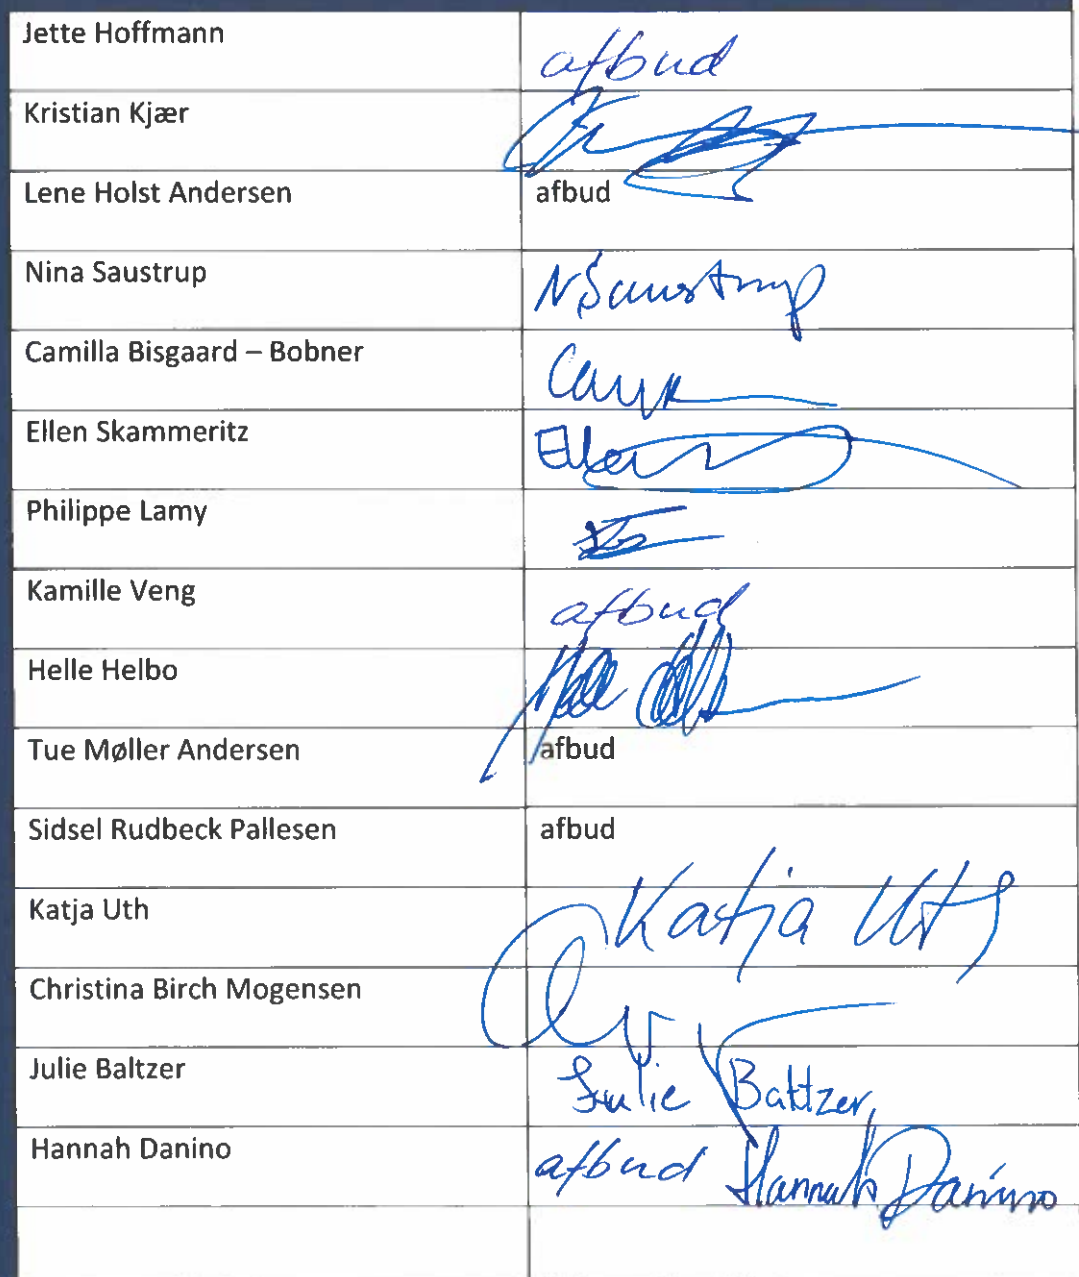 Jette Hoffmann afbud
Kristian Kjær
Lene Holst Andersen afbud
Nina Saustrup NSaustrup
Camilla Bisgaard – Bobner
Ellen Skammeritz Ellen
Philippe Lamy
Kamille Veng afbud
Helle Helbo Helle
Tue Møller Andersen afbud
Sidsel Rudbeck Pallesen afbud
Katja Uth Katja Uth
Christina Birch Mogensen
Julie Baltzer Julie Baltzer
Hannah Danino afbud Hannah Danino